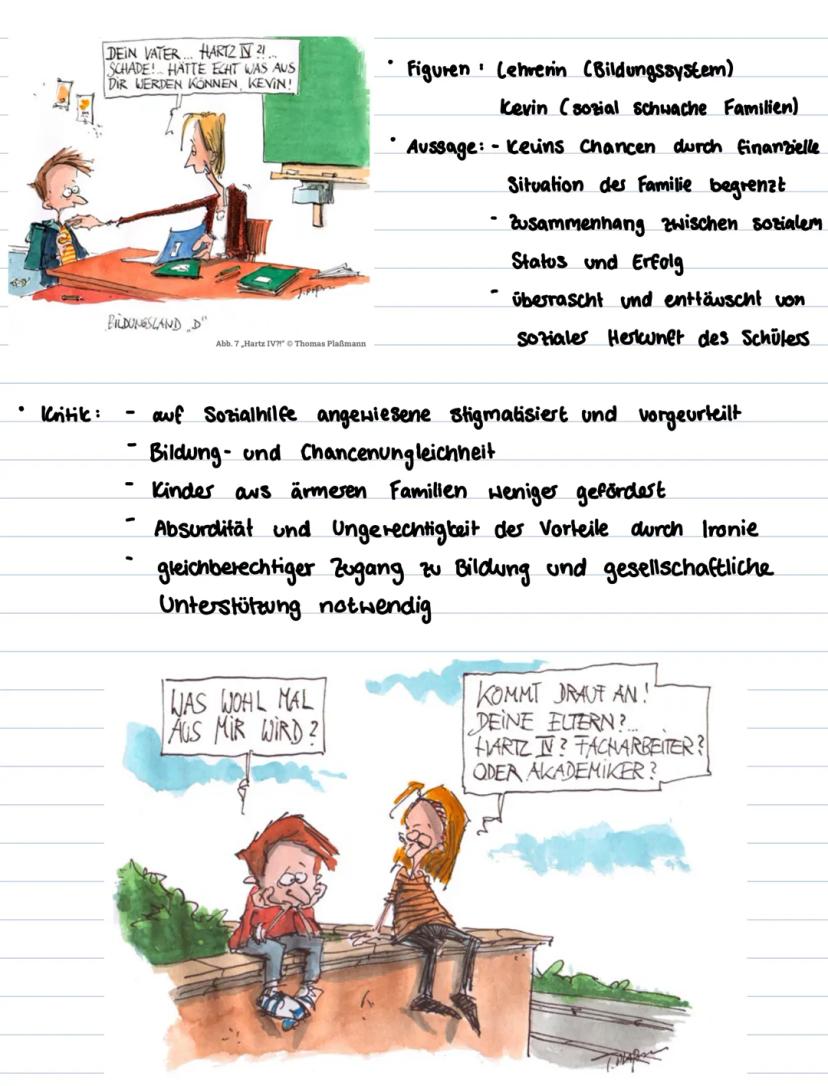 DEIN VATER... HARTZ IV ?!...
SCHADE!.. HÄTTE ECHT WAS AUS
DIR WERDEN KÖNNEN, KEVIN!
BILDUNGSLAND „D"
Abb. 7 „Hartz IV?!" © Thomas Plaßmann
• Figuren : Lehrerin (Bildungssystem)
Kevin (sozial schwache Familien)
• Aussage: - Kevins Chancen durch finanzielle
Situation der Familie begrenzt
- Zusammenhang zwischen sozialem
Status und Erfolg
- überrascht und enttäuscht von
sozialer Herkunft des Schülers
• Kritik: - auf Sozialhilfe angewiesene stigmatisiert und vorgeurteilt
- Bildung- und Chancenungleichheit
- Kinder aus ärmeren Familien weniger gefördert
- Absurdität und Ungerechtigkeit der Vorteile durch Ironie
- gleichberechtiger Zugang zu Bildung und gesellschaftliche
Unterstützung notwendig
WAS WOHL MAL
AUS MIR WIRD?
KOMMT DRAUF AN!
DEINE ELTERN?...
HARTZ IV? FACHARBEITER?
ODER AKADEMIKER?